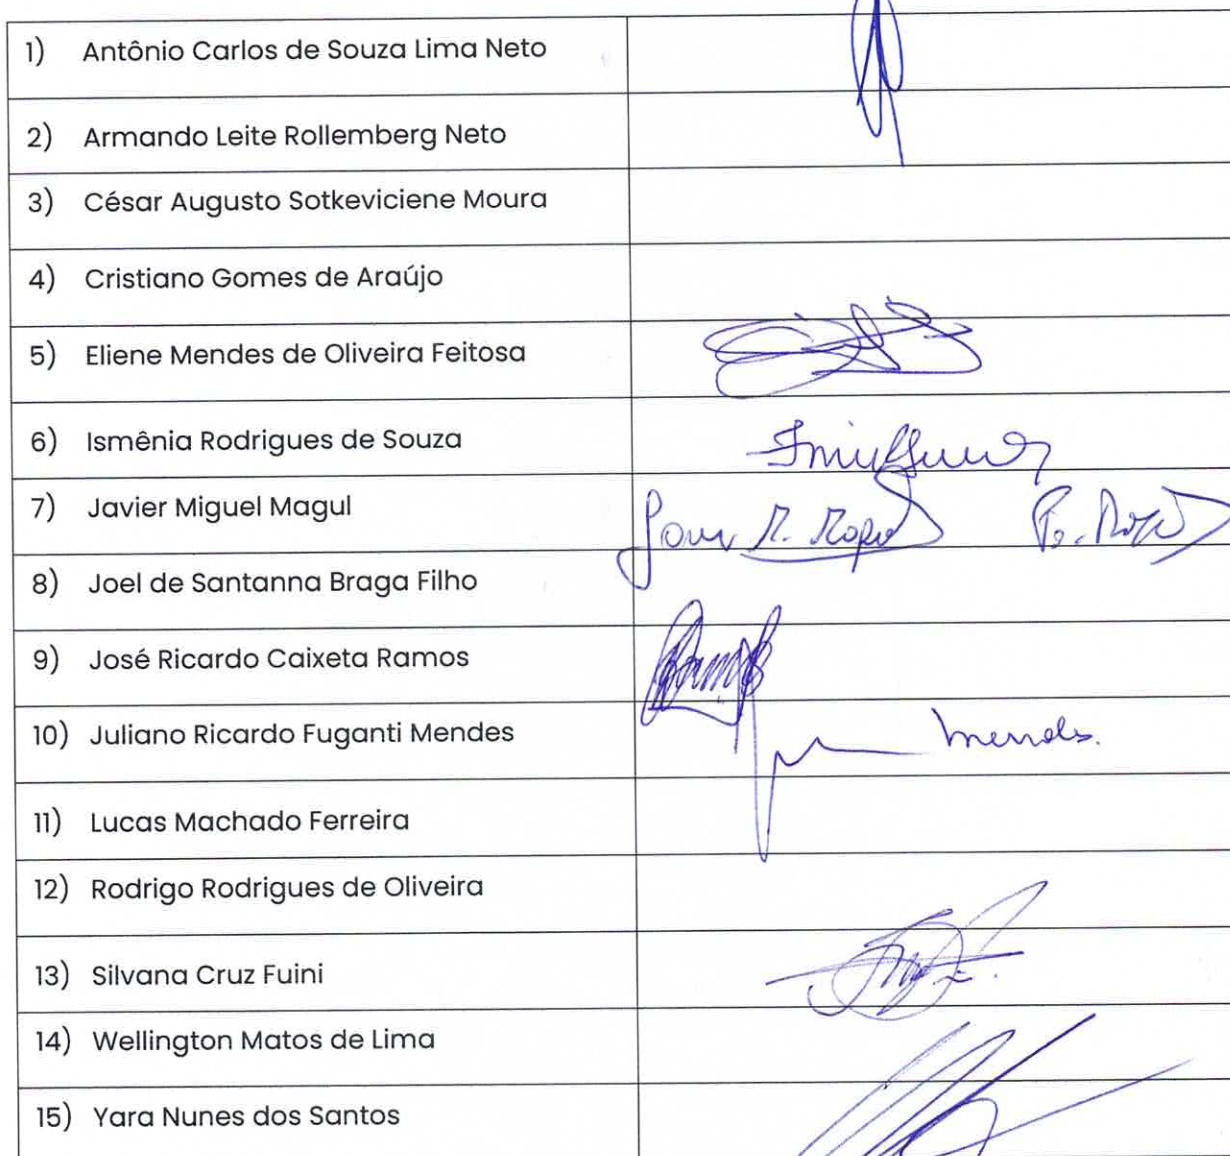 1) Antônio Carlos de Souza Lima Neto
2) Armando Leite Rollemberg Neto
3) César Augusto Sotkeviciene Moura
4) Cristiano Gomes de Araújo
5) Eliene Mendes de Oliveira Feitosa
6) Ismênia Rodrigues de Souza
7) Javier Miguel Magul
8) Joel de Santanna Braga Filho
9) José Ricardo Caixeta Ramos
10) Juliano Ricardo Fuganti Mendes
mendes.
11) Lucas Machado Ferreira
12) Rodrigo Rodrigues de Oliveira
13) Silvana Cruz Fuini
14) Wellington Matos de Lima
15) Yara Nunes dos Santos